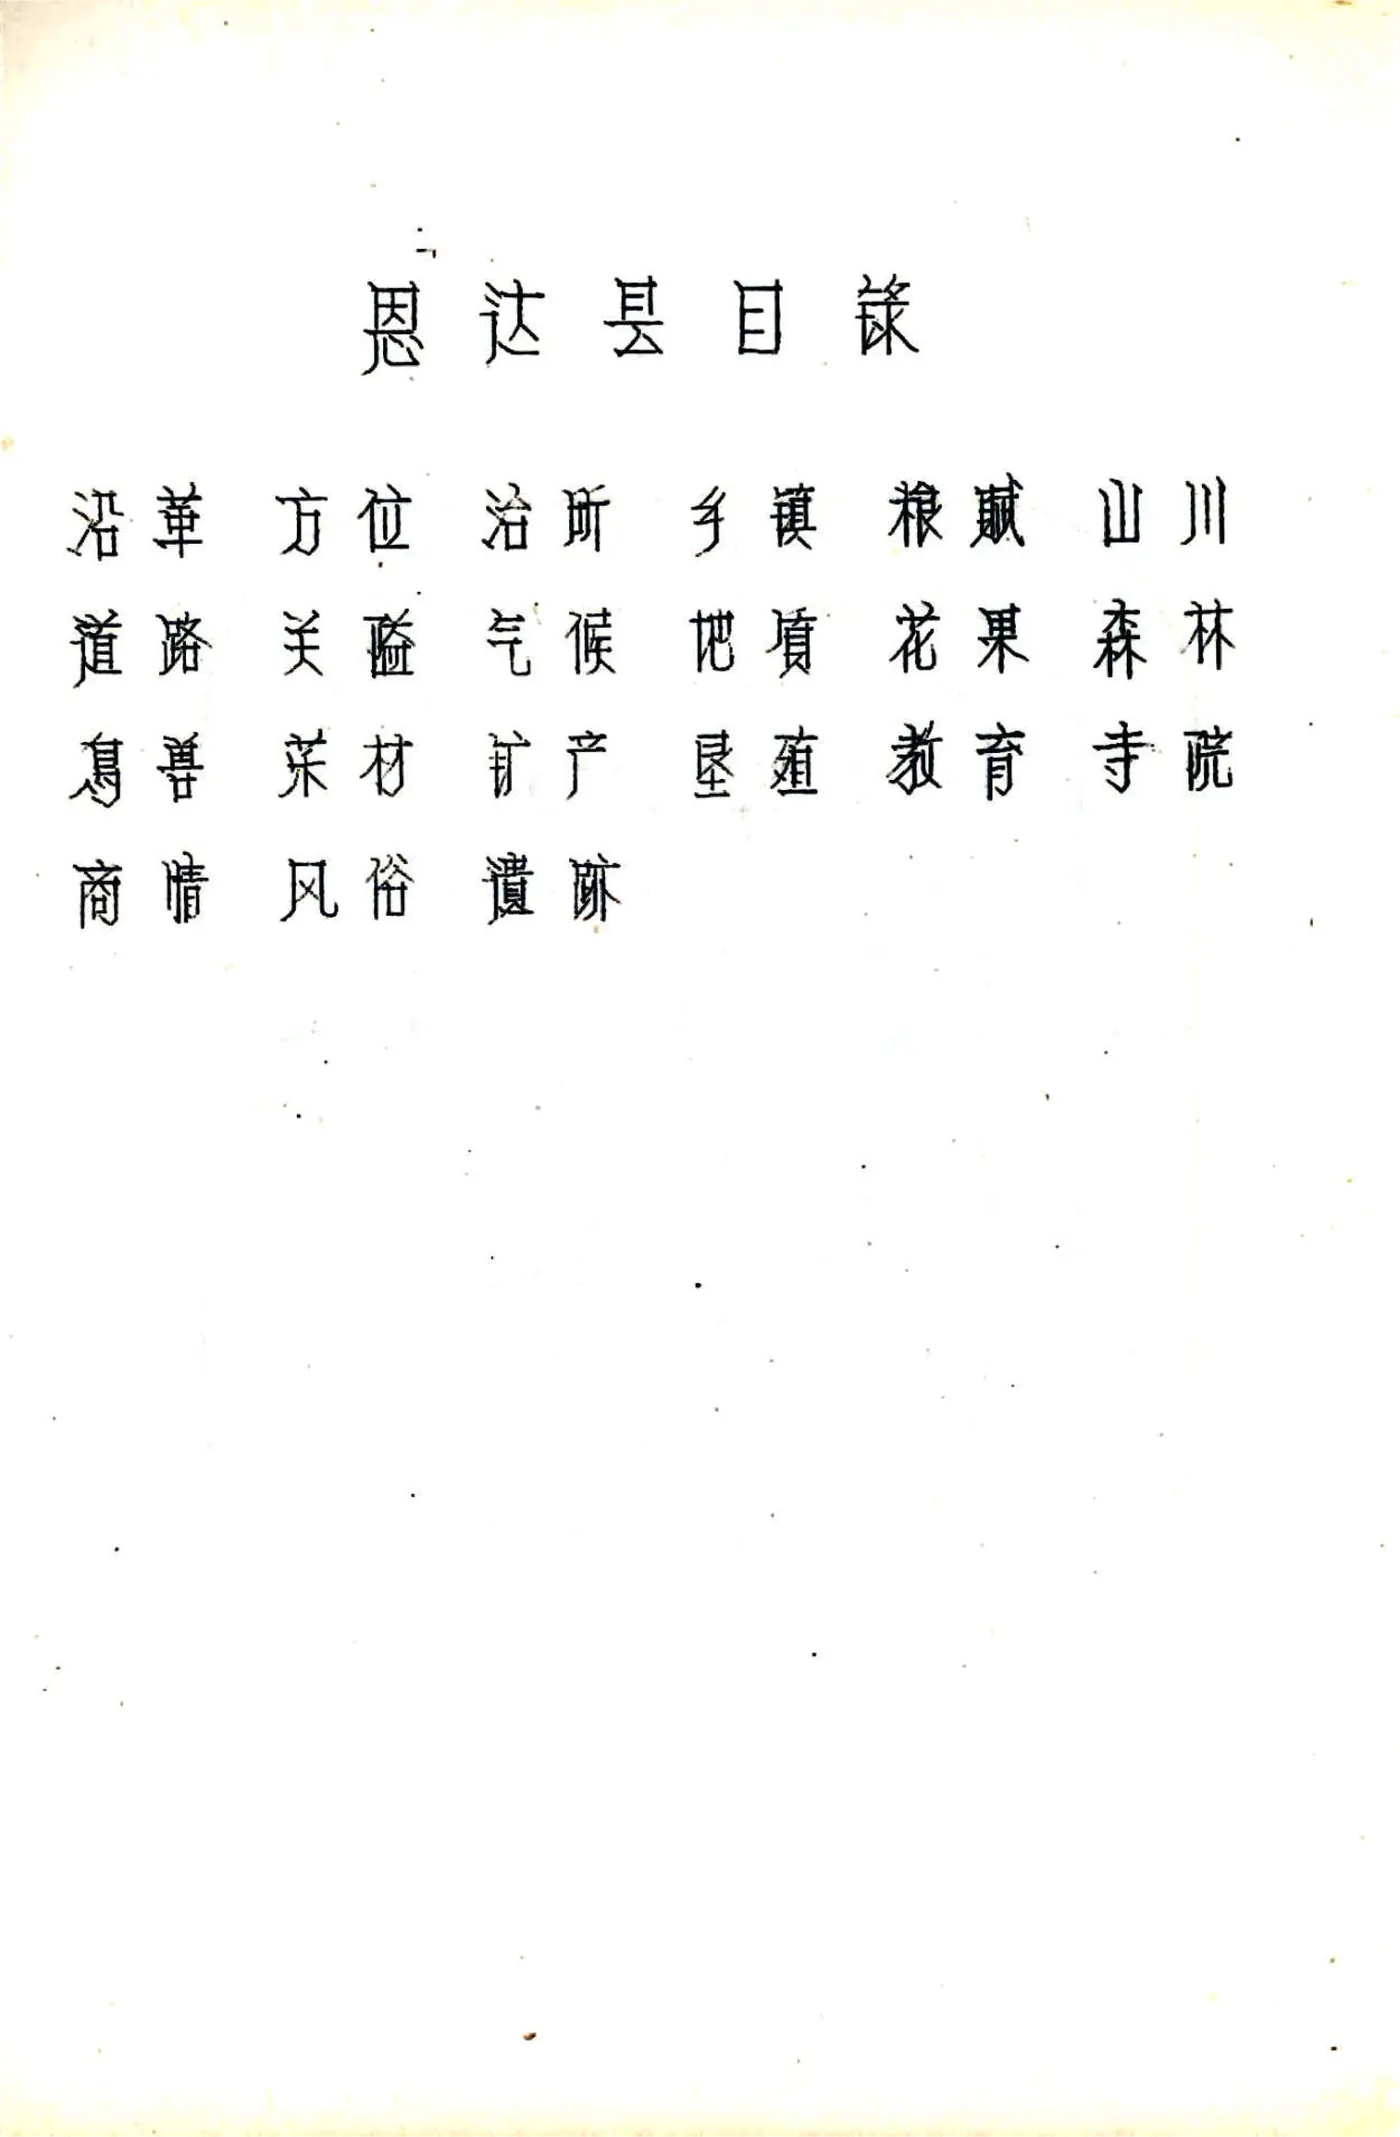 恩达县目錄
沿革 方位 治所 乡镇 粮赋 山川
道路 关隘 气候 地貭 花果 森林
鳥兽 矿产 垦殖 教育 寺院
商情 风俗 遺跡